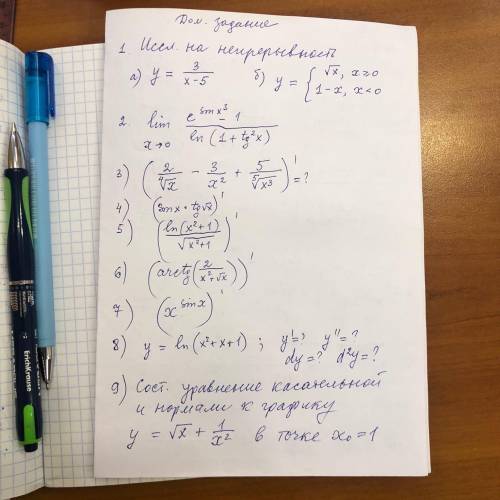 Дом. задание
1. Иссл. на непрерывность
а) y = 3/(x-5)   б) y = { √x, x≥0
1-x, x<0
2. lim x→0 (e^(sin x³) - 1)/(ln(1+tg²x))
3) (2/⁴√x - 3/x² + 5/⁵√x³)' = ?
4) (sinx · tg√x)'
5) (ln(x²+1)/√(x²+1))'
6) (arctg(2/(x²+√x)))'
7) (x^(sinx))'
8) y = ln(x²+x+1) ; y'=? y''=?
dy=? d²y=?
9) Сост. уравнение касательной
и нормали к графику
y = √x + 1/x² в точке x₀=1
ErichKrause